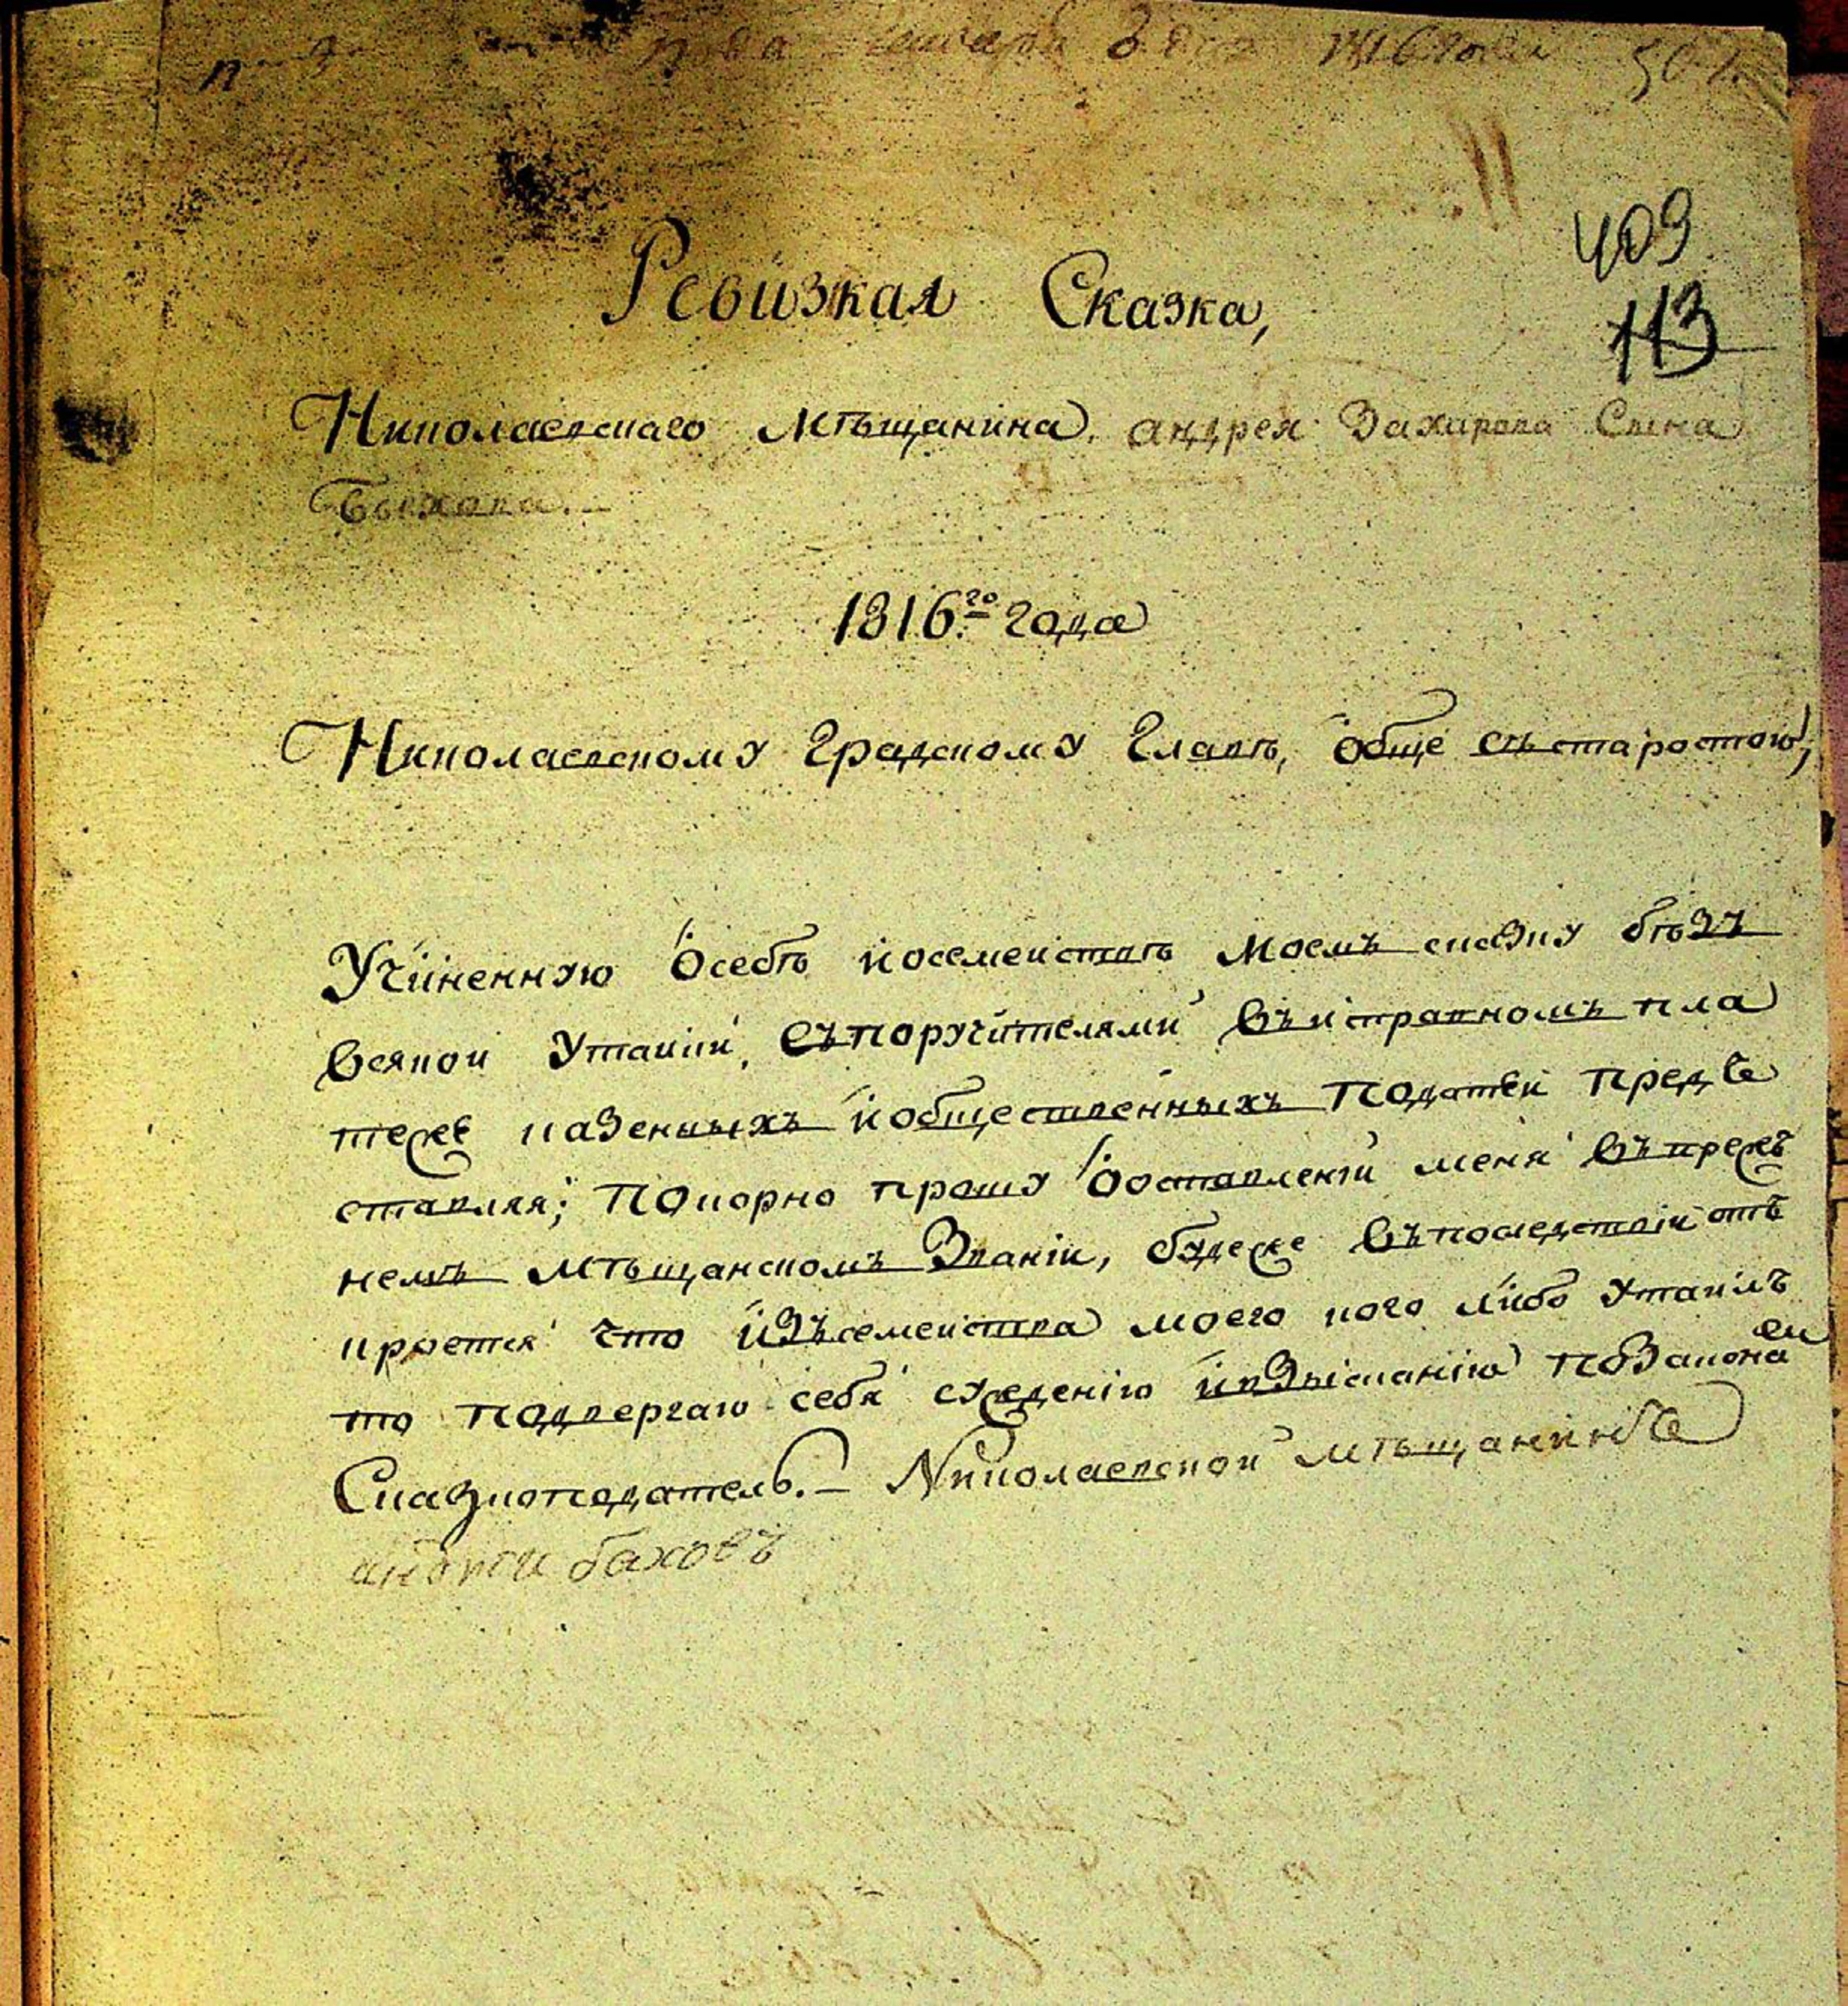 генваря 3 дня 1816 года
409
113
Ревизкая Сказка,
Николаевскаго Мѣщанина. андрея Захирова Сына
Быхова.—
1816.го года
Николаевскому Градскому Главѣ, обще съ старостою,
Учиненную о себѣ и о семействѣ моемъ сказку бѣзъ
всякой Утаийи, съ поручителями въ исправномъ пла
теже казенныхъ и общественныхъ податей предъ
ставляя; покорно прошу о оставленіи меня въ преж
немъ мѣщанскомъ Званіи, буде же въ последствіи отъ
кроется что изъ семейства моего кого либо утаилъ
то подвергаю себя суждению и взысканію по Закона
Сказкоподатель.— Николаевской мѣщанинъ
андрей баховъ